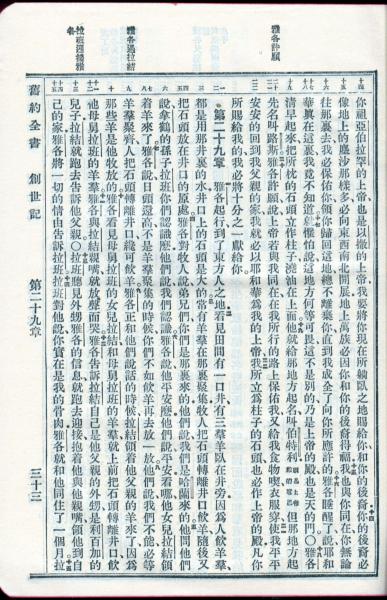 雅各許願
雅各遇拉結
拉班迎接雅各
你祖亞伯拉罕的上帝也是以撒的上帝我要將你現在所躺臥之地賜給你和你的後裔你的後裔必
像地上的塵沙那樣多必向東西南北開展地上萬族必因你和你的後裔得福我也與你同在你無論
往那裏去我必保佑你領你歸回這地總不離棄你直到我成全了向你所應許的雅各睡醒了說耶和
華真在這裏我竟不知道就懼怕說這地方何等可畏這不是別的乃是上帝的殿也是天的門○雅各
清早起來把所枕的石頭立作柱子澆油在上面他就給那地方起名叫伯特利就是上帝殿的意思但那地方起
先名叫路斯雅各許願說上帝若與我同在在我所行的路上保佑我又給我食物喫衣服穿使我平平
安安的回到我父親的家我就必以耶和華為我的上帝我所立為柱子的石頭也必作上帝的殿凡你
所賜給我的我必將十分之一獻給你
第二十九章 雅各起行到了東方人之地看見田間有一口井有三羣羊臥在井旁因為人飲羊羣
都是用那井裏的水井口上的石頭是大的常有羊羣在那裏聚集牧人把石頭轉離井口飲羊隨後又
把石頭放在井口的原處雅各對牧人說弟兄們你們是那裏來的他們說我們是哈蘭來的他問他們
說拿鶴的孫子拉班你們認識麼他們說我們認識雅各說他平安麼他們說平安看哪他女兒拉結領
着羊來了雅各說日頭還高不是羊羣聚集的時候你們不如飲羊再去放一放他們說我們不能必等
羊羣聚齊人把石頭轉離井口纔可飲羊雅各正和他們說話的時候拉結領着他父親的羊來了因為
那些羊是他牧放的雅各看見母舅拉班的女兒拉結和母舅拉班的羊羣就上前把石頭轉離井口飲
他母舅拉班的羊羣雅各與拉結親嘴就放聲而哭雅各告訴拉結自己是他父親的外甥是利百加的
兒子拉結就跑去告訴他父親○拉班聽見外甥雅各的信息就跑去迎接抱着他與他親嘴領他到自
己的家雅各將一切的情由告訴拉班拉班對他說你實在是我的骨肉雅各就和他同住了一個月拉
舊約全書 創世記 第二十九章 三十三